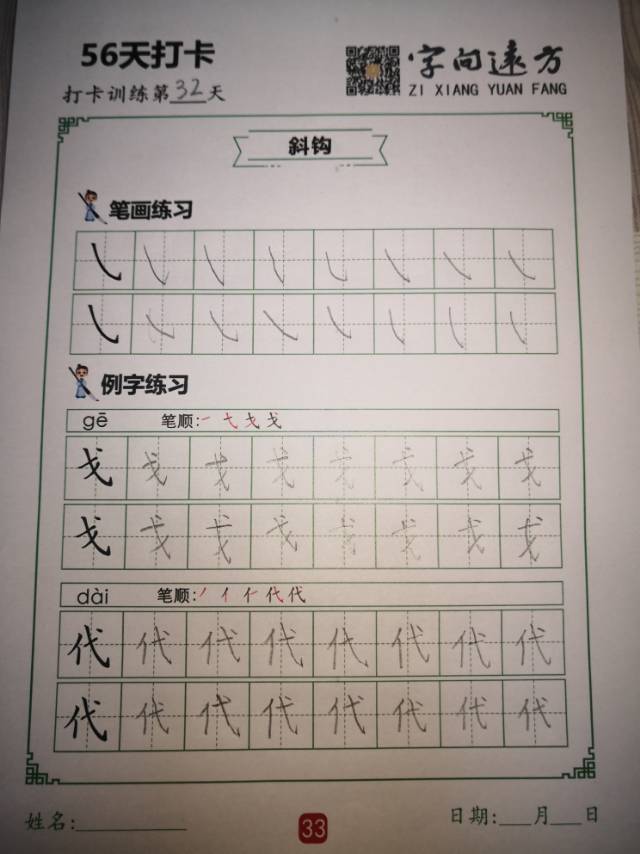 56天打卡
字向远方
打卡训练第32天
ZI XIANG YUAN FANG
斜钩
笔画练习
例字练习
gē 笔顺:
戈 戈 戈 戈 戈 戈 戈 戈
戈 戈 戈 戈 戈 戈 戈 戈
dài 笔顺:
代 代 代 代 代 代 代 代
代 代 代 代 代 代 代 代
姓名:
33
日期: 月 日